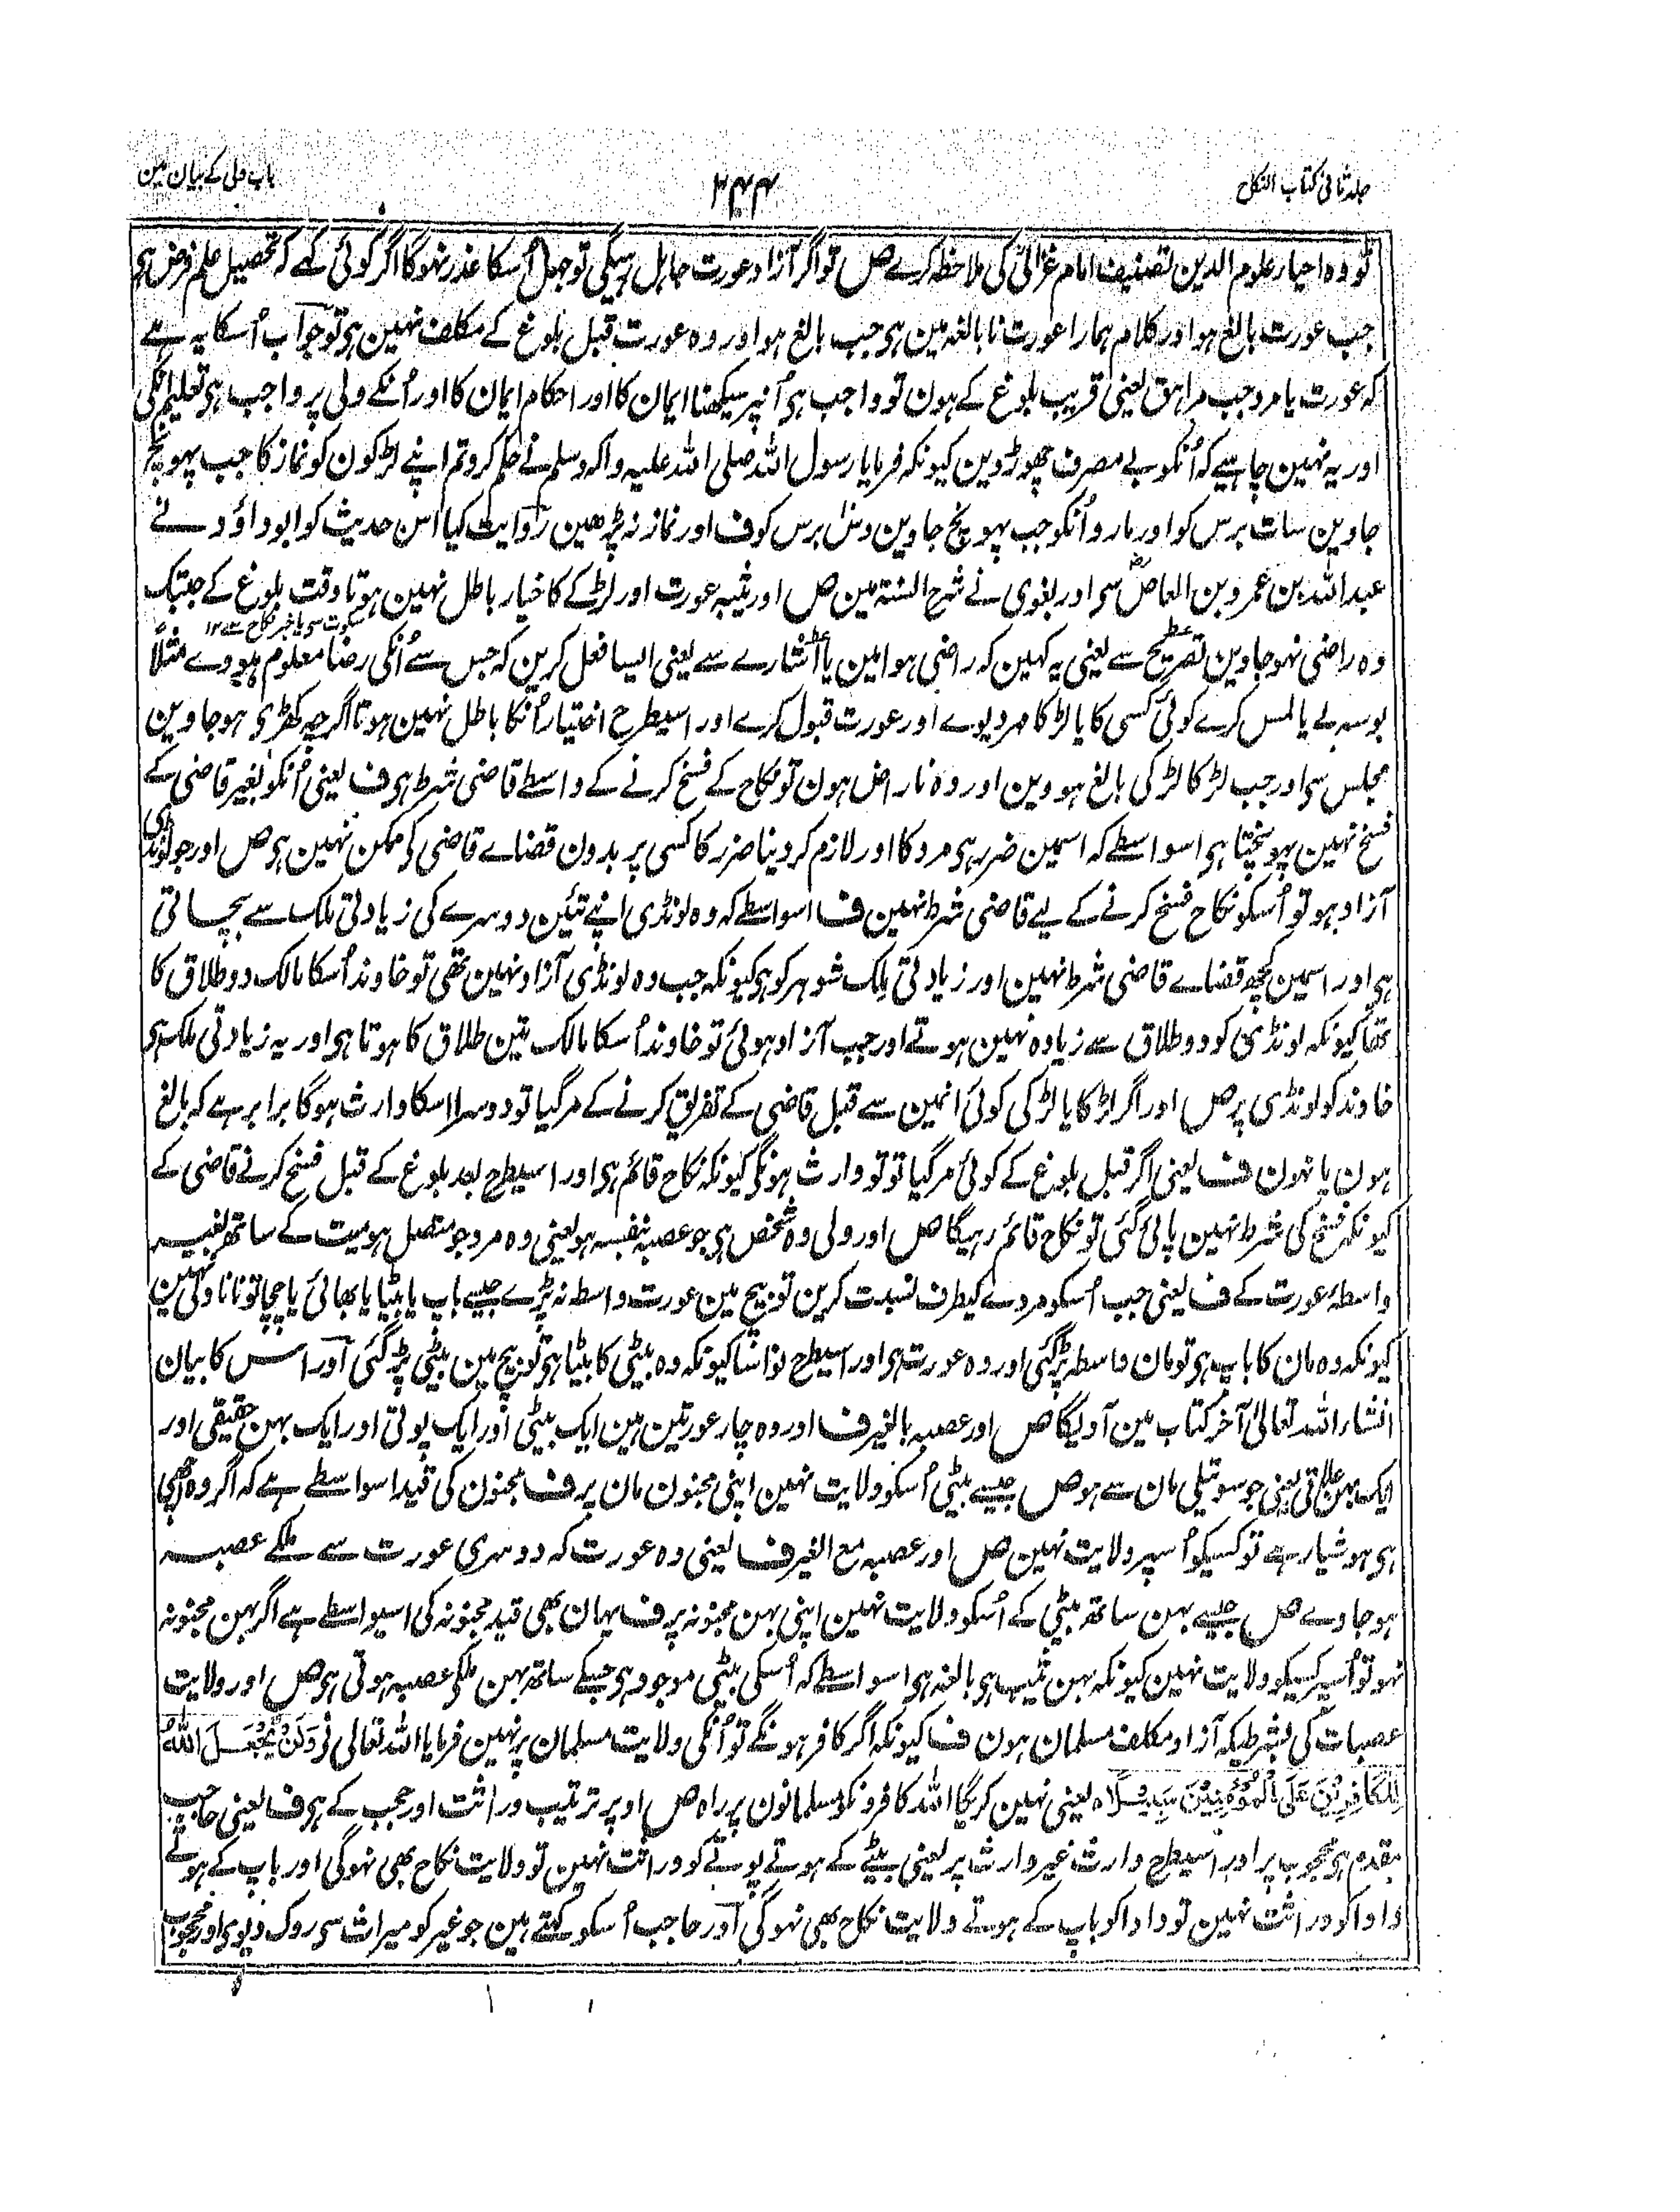 جلد ثانی کتاب النکاح
۲۴۴
باب ولی کے بیان مین
تو وہ احیاء علوم الدین تصنیف امام غزالیؒ کی ملاحظہ کرے ص تو اگر آزاد عورت جاہل رہیگی تو جہل اُسکا عذر نہوگا اگر کوئی کہے کہ تحصیل علم فرض ہی
جب عورت بالغ ہو اور کلام ہمارا عورت نابالغہ مین ہی جب بالغ ہو اور وہ عورت قبل بلوغ کے مکلف نہین ہی تو جواب اُسکا یہ ہے
کہ عورت یا مرد جب مراہق یعنی قریب بلوغ کے ہون تو واجب ہی اُنپر سیکھنا ایمان کا اور احکام ایمان کا اور اُنکے ولی پر واجب ہی تعلیم اُنکی
اور یہ نہین چاہیے کہ اُنکو بے مصرف چھوڑ دین کیونکہ فرمایا رسول اللہ صلی اللہ علیہ واٰلہ وسلم نے حکم کرو تم اپنے لڑکون کو نماز کا جب پہونچ
جاوین سات برس کو اور مارو اُنکو جب پہونچ جاوین دس برس کو ف اور نماز نہ پڑھین روایت کیا اس حدیث کو ابو داؤد نے
عبد اللہ بن عمرو بن العاصؓ سی اور بغوی نے شرح السنۃ مین ص اور ثیبہ عورت اور لڑکے کا خیار باطل نہین ہوتا وقت بلوغ کے جبتک
سکوت سی یا خبر نکاح سے ۱۲
وہ راضی نہو جاوین تصریح سے یعنی یہ کہین کہ راضی ہوا مین یا اشارے سے یعنی ایسا فعل کرین کہ جس سے اُنکی رضا معلوم ہووے مثلاً
بوسہ لے یا لمس کرے کوئی کسی کا یا لڑکا مہر دیوے اور عورت قبول کرے اور اسیطرح اختیار اُنکا باطل نہین ہوتا اگرچہ کھڑی ہو جاوین
مجلس سی اور جب لڑکا لڑکی بالغ ہووین اور وہ ناراض ہون تو نکاح کے فسخ کرنے کے واسطے قاضی شرط ہی ف یعنی اُنکو بغیر قاضی کے
فسخ نہین پہونچتا ہی اسواسطے کہ اسمین ضرر ہی مرد کا اور لازم کر دینا ضرر کا کسی پر بدون قضاے قاضی کو ممکن نہین ہی ص اور جو لونڈی
آزاد ہو تو اُسکو نکاح فسخ کرنے کے لیے قاضی شرط نہین ف اسواسطے کہ وہ لونڈی اپنے تئین دوسرے کی زیادتی ملک سے بچاتی
ہی اور اسمین کچھ قضاے قاضی شرط نہین اور زیادتی ملک شوہر کو ہی کیونکہ جب وہ لونڈی آزاد نہین تھی تو خاوند اُسکا مالک دو طلاق کا
تھا کیونکہ لونڈی کو دو طلاق سے زیادہ نہین ہوتے اور جب آزاد ہوئی تو خاوند اُسکا مالک تین طلاق کا ہوتا ہی اور یہ زیادتی ملک ہی
خاوند کو لونڈی پر ص اور اگر لڑکا یا لڑکی کوئی انمین سے قبل قاضی کے تفریق کرنے کے مر گیا تو دوسرا اسکا وارث ہوگا برابر ہے کہ بالغ
ہون یا نہون ف یعنی اگر قبل بلوغ کے کوئی مر گیا تو تو وارث ہونگے کیونکہ نکاح قائم ہی اور اسیطرح بعد بلوغ کے قبل فسخ کرنے قاضی کے
کیونکہ فسخ کی شرط نہین پائی گئی تو نکاح قائم رہیگا ص اور ولی وہ شخص ہی جو عصبہ بنفسہ ہو یعنی وہ مرد جو متصل ہو میت کے ساتھ بغیر
واسطۂ عورت کے ف یعنی جب اُسکو مردے کیطرف نسبت کرین تو بیچ مین عورت واسطہ نہ پڑے جیسے باپ یا بیٹا یا بھائی یا چچا تو نانا ولی نہین
کیونکہ وہ مان کا باپ ہی تو مان واسطہ پڑ گئی اور وہ عورت ہی اور اسیطرح نواسا کیونکہ وہ بیٹی کا بیٹا ہی تو بیچ مین بیٹی پڑ گئی اور اس کا بیان
انشاء اللہ تعالیٰ آخر کتاب مین آویگا ص اور عصبہ بالغیر ف اور وہ چار عورتین ہین ایک بیٹی اور ایک پوتی اور ایک بہن حقیقی اور
ایک بہن علاتی یعنی جو سوتیلی مان سے ہو ص جیسے بیٹی اُسکو ولایت نہین اپنی مجنون مان پر ف مجنون کی قید اسواسطے ہے کہ اگر وہ اچھی
ہی ہوشیار ہے تو کسیکو اُسپر ولایت نہین ص اور عصبہ مع الغیر ف یعنی وہ عورت کہ دوسری عورت سے ملکے عصبہ
ہو جاوے ص جیسے بہن ساتھ بیٹی کے اُسکو ولایت نہین اپنی بہن مجنونہ پر ف یہان بھی قید مجنونہ کی اسیواسطے ہے اگر بہن مجنونہ
نہو تو اُسپر کسیکو ولایت نہین کیونکہ بہن ثیب ہی بالغہ ہی اسواسطے کہ اُسکی بیٹی موجود ہی جسکے ساتھ بہن ملکی عصبہ ہوتی ہی ص اور ولایت
عصبات کی بشرطیکہ آزاد مکلف مسلمان ہون ف کیونکہ اگر کافر ہونگے تو اُنکی ولایت مسلمان پر نہین فرمایا اللہ تعالی نے وَلَنْ یَّجْعَلَ اللّٰہُ
لِلْکَافِرِیْنَ عَلَی الْمُؤْمِنِیْنَ سَبِیْلًا ہ یعنی نہین کریگا اللہ کافرونکو مسلمانون پر راہ ص اوپر ترتیب وراثت اور حجب کے ہی ف یعنی حاجب
مقدم ہی محجوب پر اور اسیطرح وارث غیر وارث پر یعنی بیٹے کے ہوتے پوتے کو وراثت نہین تو ولایت نکاح بھی نہوگی اور باپ کے ہوتے
دادا کو وراثت نہین تو دادا کو باپ کے ہوتے ولایت نکاح بھی نہوگی اور حاجب اُسکو کہتے ہین جو غیر کو میراث سی روک دیوی اور محجوب